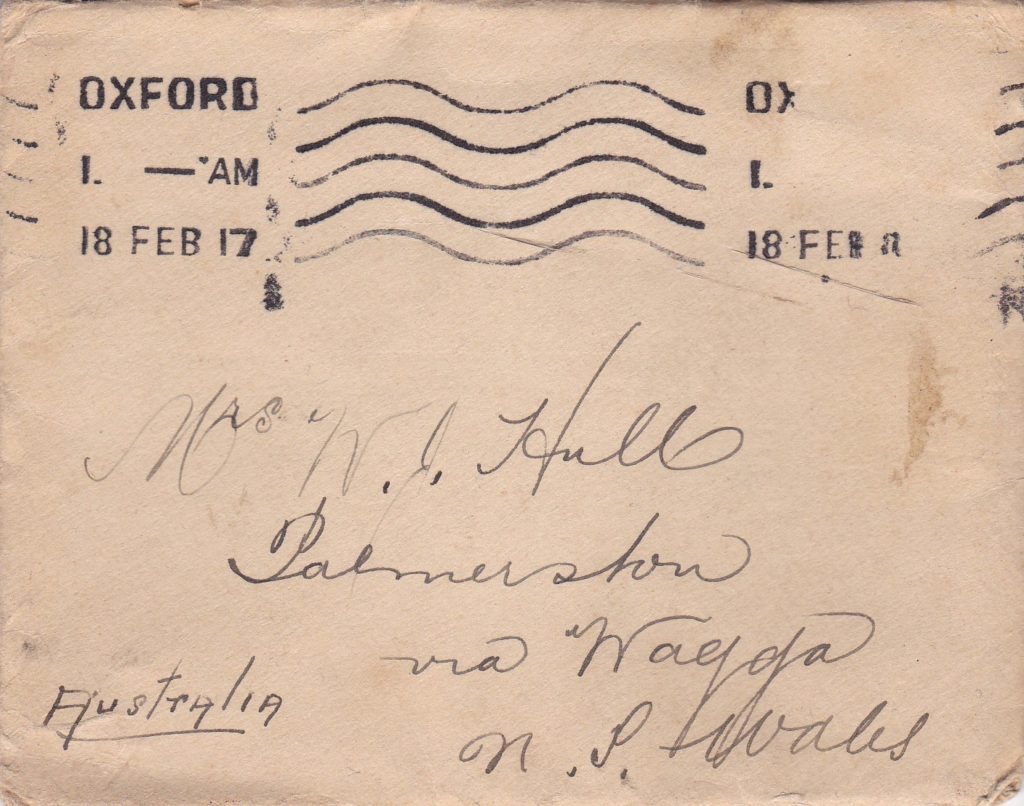 OXFORD OX
1. — AM 1.
18 FEB 17 18 FEB
Mrs W. J. Hull
Palmerston
via Wagga
Australia
N. S. Wales